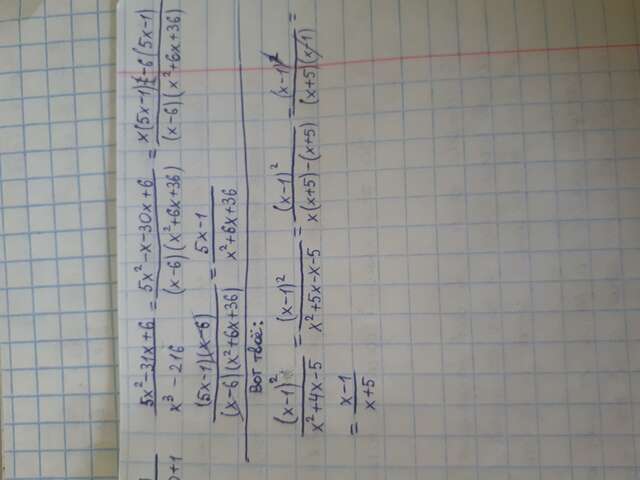 0+1
(5x²-31x+6)/(x³-216) = (5x²-x-30x+6)/((x-6)(x²+6x+36)) = (x(5x-1)-6(5x-1))/((x-6)(x²+6x+36))
((5x-1)(x-6))/((x-6)(x²+6x+36)) = (5x-1)/(x²+6x+36)
Вот твоё:
(x-1)²/(x²+4x-5) = (x-1)²/(x²+5x-x-5) = (x-1)²/(x(x+5)-(x+5)) = (x-1)²/((x+5)(x-1)) =
= (x-1)/(x+5)